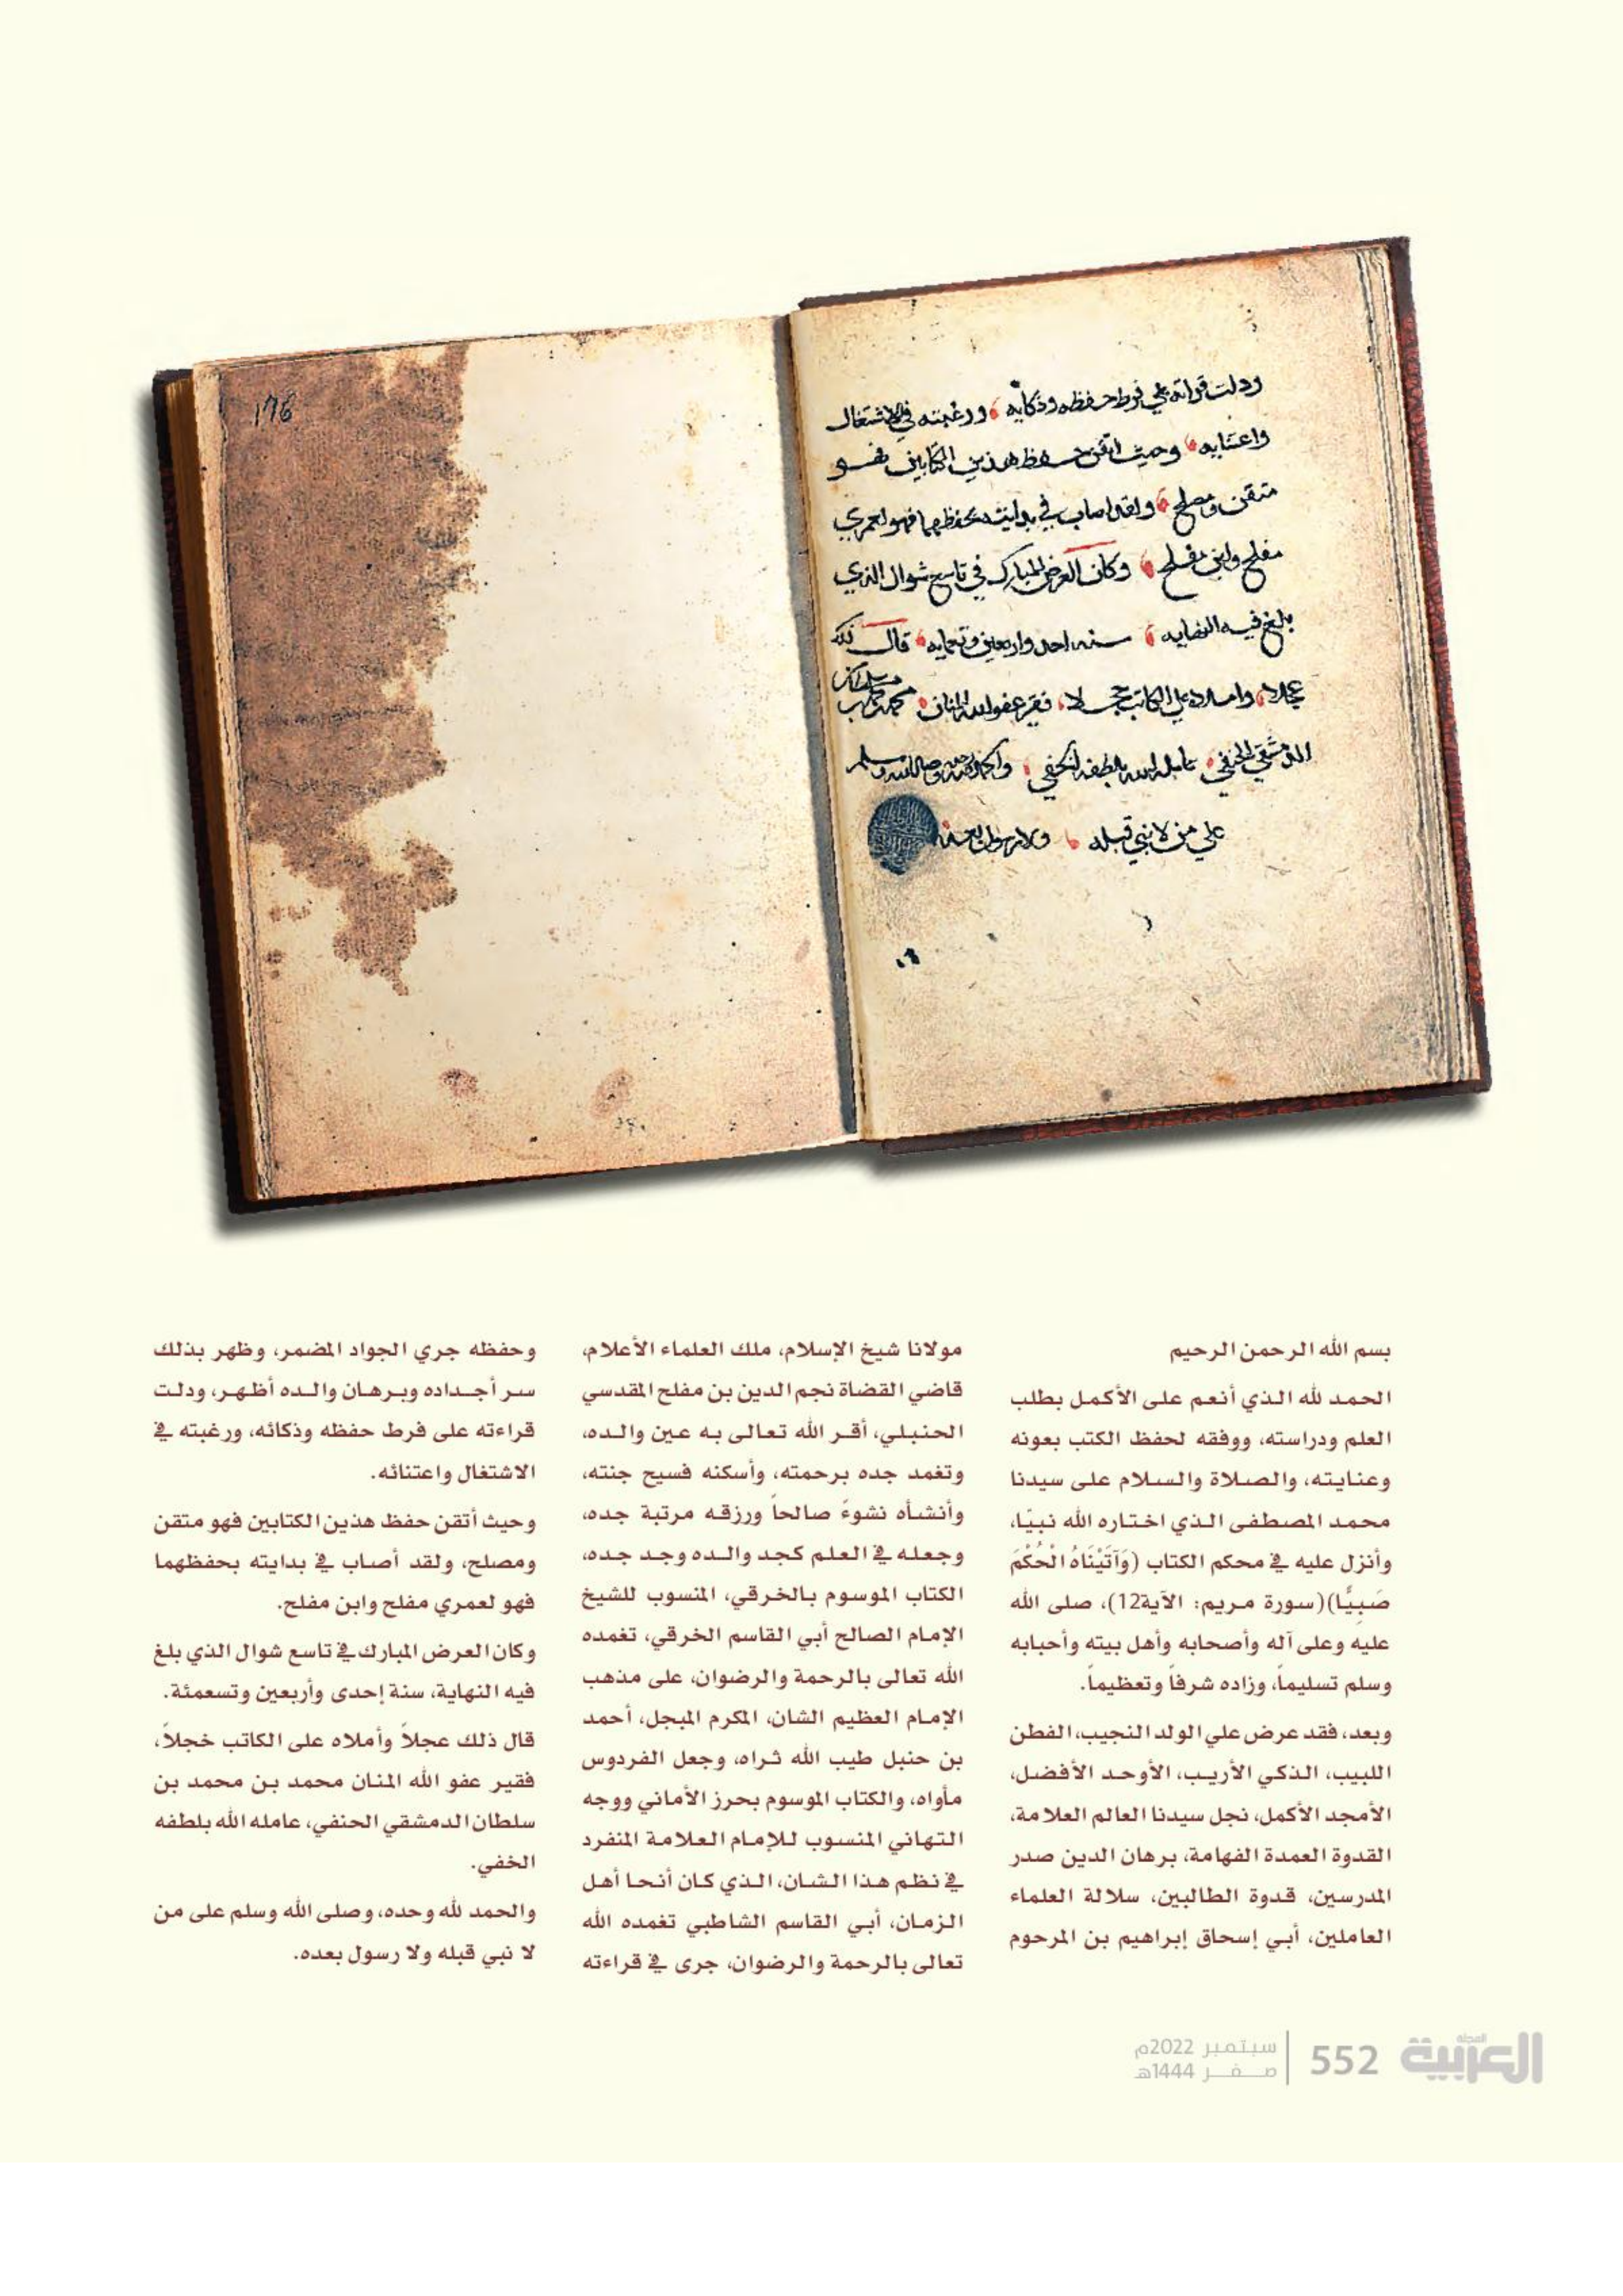 176
ودلت قراته على فرط حفظه وذكايه ورغبته في الاشتغال
واعتنايه وحيث اتقن حفظ هذين الكتابين فهو
متقن ومصلح ولقد اصاب في بدايته بحفظهما فهو لعمري
مفلح وابن مفلح وكان العرض المبارك في تاسع شوال الذي
بلغ فيه النهايه سنه احدى واربعين وتسعمايه قال ذلك
عجلا واملاه على الكاتب خجلا فقير عفو الله المنان محمد بن
الدمشقي الحنفي عامله الله بلطفه الخفي والحمد لله وحده وصلى الله وسلم
على من لا نبي قبله ولا رسول بعده
بسم الله الرحمن الرحيم
الحمد لله الذي أنعم على الأكمل بطلب
العلم ودراسته، ووفقه لحفظ الكتب بعونه
وعنايته، والصلاة والسلام على سيدنا
محمد المصطفى الذي اختاره الله نبيًا،
وأنزل عليه في محكم الكتاب (وَآتَيْنَاهُ الْحُكْمَ
صَبِيًّا)(سورة مريم: الآية12)، صلى الله
عليه وعلى آله وأصحابه وأهل بيته وأحبابه
وسلم تسليماً، وزاده شرفاً وتعظيماً.
وبعد، فقد عرض علي الولد النجيب، الفطن
اللبيب، الذكي الأريب، الأوحد الأفضل،
الأمجد الأكمل، نجل سيدنا العالم العلامة،
القدوة العمدة الفهامة، برهان الدين صدر
المدرسين، قدوة الطالبين، سلالة العلماء
العاملين، أبي إسحاق إبراهيم بن المرحوم
مولانا شيخ الإسلام، ملك العلماء الأعلام،
قاضي القضاة نجم الدين بن مفلح المقدسي
الحنبلي، أقر الله تعالى به عين والده،
وتغمد جده برحمته، وأسكنه فسيح جنته،
وأنشأه نشوءً صالحاً ورزقه مرتبة جده،
وجعله في العلم كجد والده وجد جده،
الكتاب الموسوم بالخرقي، المنسوب للشيخ
الإمام الصالح أبي القاسم الخرقي، تغمده
الله تعالى بالرحمة والرضوان، على مذهب
الإمام العظيم الشان، المكرم المبجل، أحمد
بن حنبل طيب الله ثراه، وجعل الفردوس
مأواه، والكتاب الموسوم بحرز الأماني ووجه
التهاني المنسوب للإمام العلامة المنفرد
في نظم هذا الشان، الذي كان أنحا أهل
الزمان، أبي القاسم الشاطبي تغمده الله
تعالى بالرحمة والرضوان، جرى في قراءته
وحفظه جري الجواد المضمر، وظهر بذلك
سر أجداده وبرهان والده أظهر، ودلت
قراءته على فرط حفظه وذكائه، ورغبته في
الاشتغال واعتنائه.
وحيث أتقن حفظ هذين الكتابين فهو متقن
ومصلح، ولقد أصاب في بدايته بحفظهما
فهو لعمري مفلح وابن مفلح.
وكان العرض المبارك في تاسع شوال الذي بلغ
فيه النهاية، سنة إحدى وأربعين وتسعمئة.
قال ذلك عجلاً وأملاه على الكاتب خجلاً،
فقير عفو الله المنان محمد بن محمد بن
سلطان الدمشقي الحنفي، عامله الله بلطفه
الخفي.
والحمد لله وحده، وصلى الله وسلم على من
لا نبي قبله ولا رسول بعده.
المجلة
العربية
552
سبتمبر 2022م
صفر 1444هـ